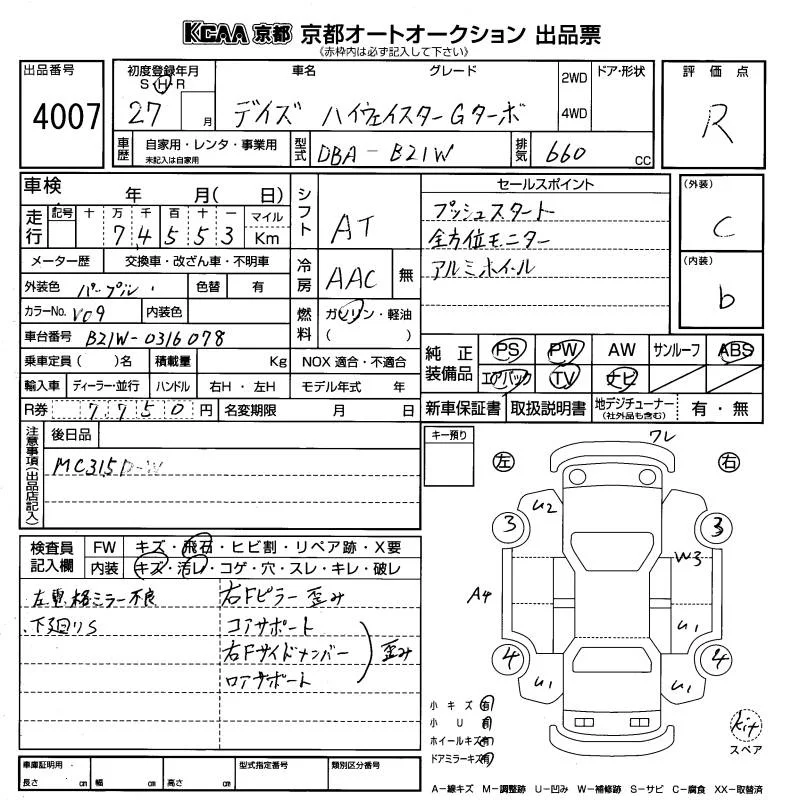 KCAA 京都 京都オートオークション 出品票
《赤枠内は必ず記入して下さい》
出品番号
4007
初度登録年月
S・H・R
27 月
車名
グレード
デイズ ハイウェイスターGターボ
2WD
4WD
ドア・形状
評価点
R
車歴
自家用・レンタ・事業用
未記入は自家用
型式
DBA-B21W
排気
660 cc
車検 年 月( 日)
走行
記号 十 万 千 百 十 一 マイル
7 4 5 5 3 Km
メーター歴 交換車・改ざん車・不明車
外装色 パープル 色替 有
カラーNo. V09 内装色
車台番号 B21W-0316078
乗車定員( )名 積載量 Kg
輸入車 ディーラー・並行 ハンドル 右H・左H
R券 7750円 名変期限 月 日
シフト AT
冷房 AAC 無
燃料 ガソリン・軽油
( )
NOX 適合・不適合
モデル年式 年
セールスポイント
プッシュスタート
全方位モニター
アルミホイル
(外装)
C
(内装)
b
純正装備品
PS PW AW サンルーフ ABS
エアバック TV ナビ
新車保証書 取扱説明書 地デジチューナー(社外品も含む) 有・無
注意事項(出品店記入)
後日品
MC315D-W
検査員記入欄
FW キズ・飛石・ヒビ割・リペア跡・X要
内装 キズ・汚レ・コゲ・穴・スレ・キレ・破レ
左電格ミラー不良
下廻りS
右Fピラー歪み
コアサポート
右Fサイドメンバー
ロアサポート
歪み
車庫証明用・
長さ cm 幅 cm 高さ cm
型式指定番号
類別区分番号
キー預り
ワレ
左
右
U2
3
3
W3
A4
U1
4
4
U1
U1
小キズ 有
小U 有
ホイールキズ 有
ドアミラーキズ 有
kit
スペア
A-線キズ M-調整跡 U-凹み W-補修跡 S-サビ C-腐食 XX-取替済